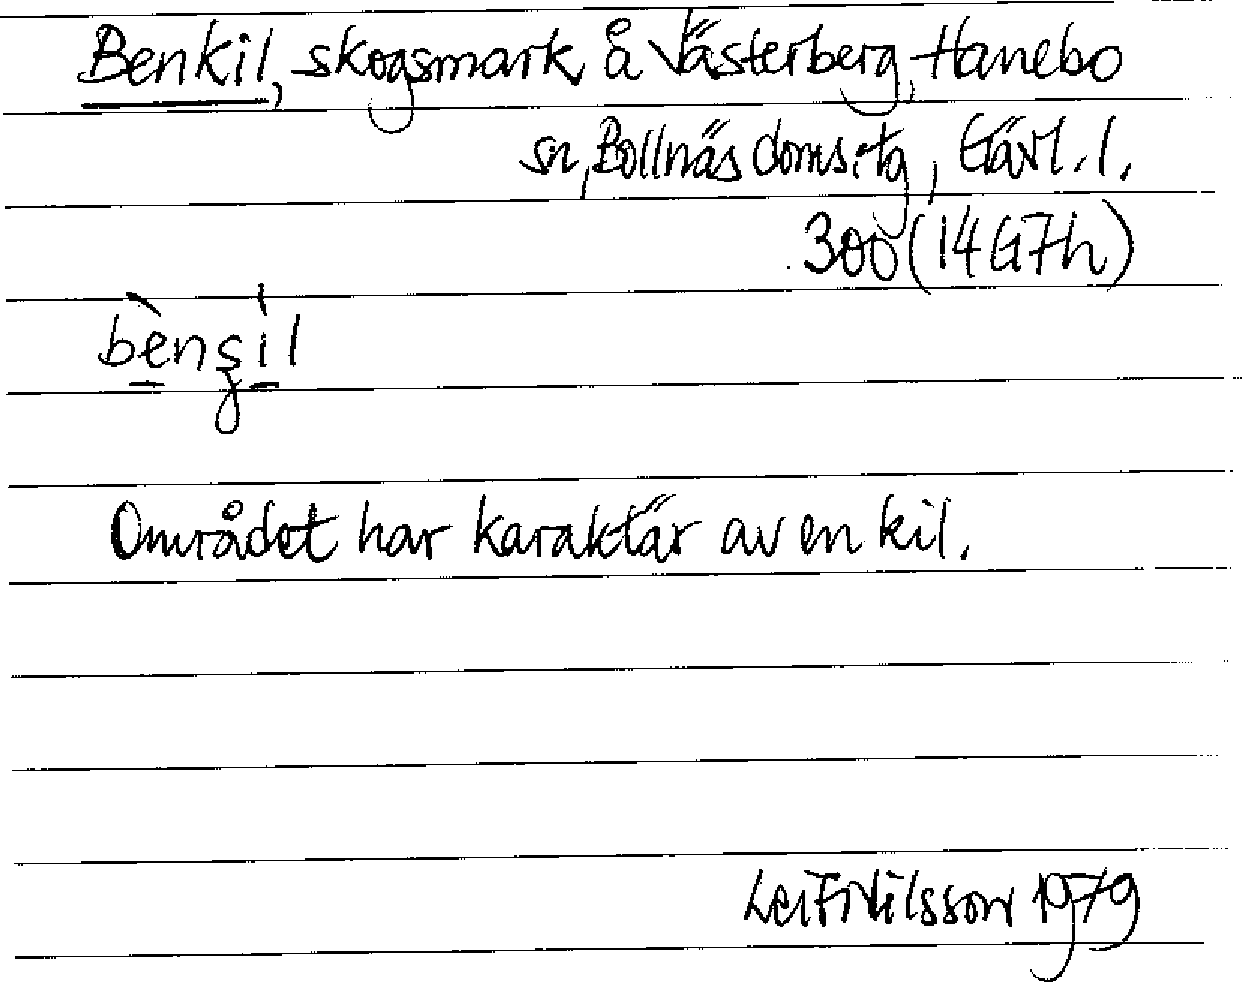 Benkil, skogsmark å Västerberg, Hanebo
sn, Bollnäs domsitg, Gävl. l.
300 (14G7h)
Området har karaktär av en kil.
Leif Nilsson 1979